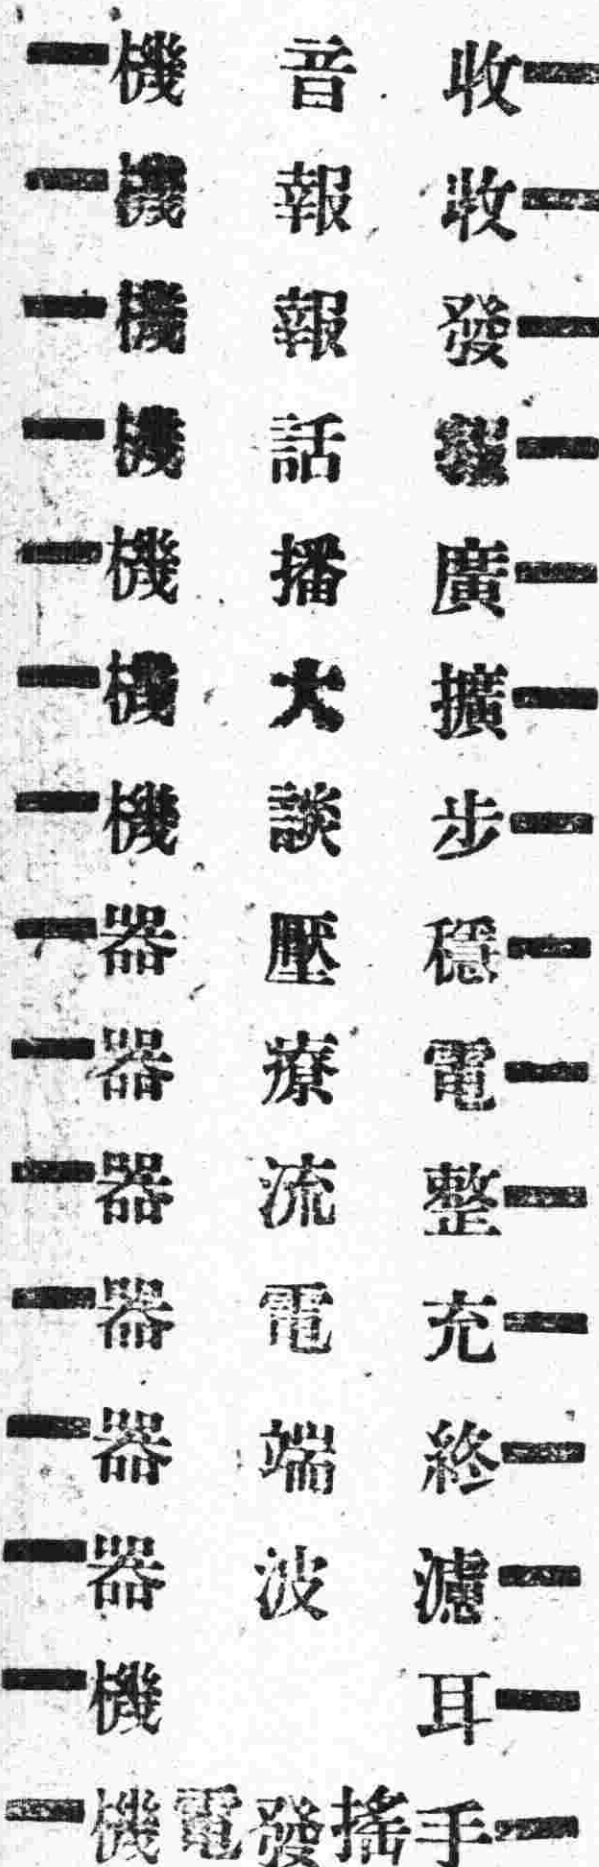 收音機
收報機
發報機
報話機
廣播機
擴大機
步談機
穩壓器
電療器
整流器
充電器
終端器
濾波器
耳機
手搖發電機